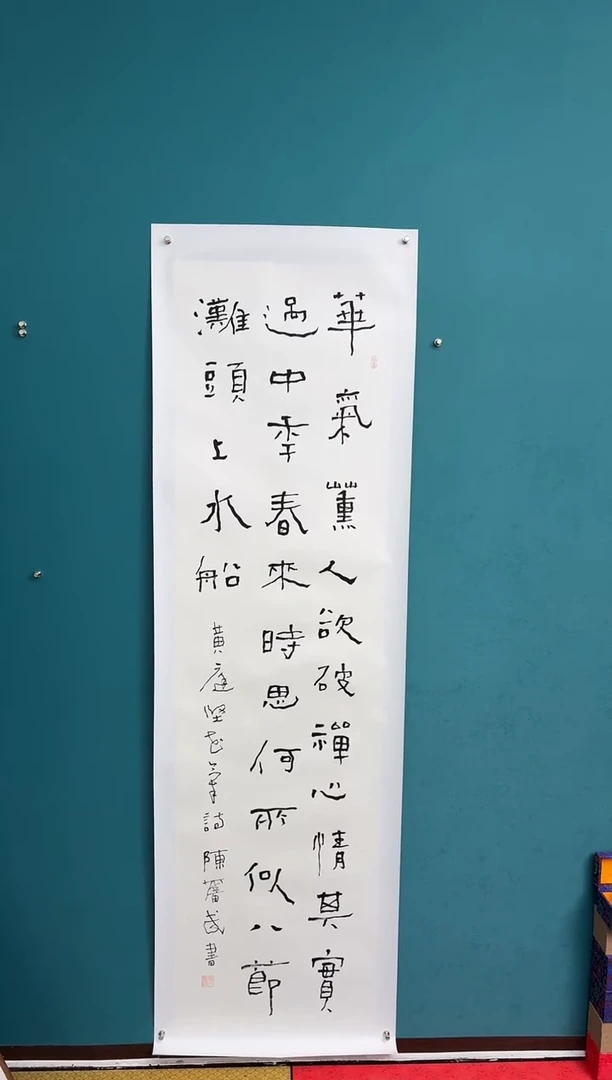 華氣薰人欲破禪心情其實
過中年春來時思何所似八節
灘頭上水船
黃庭堅花氣詩 陳藩武書